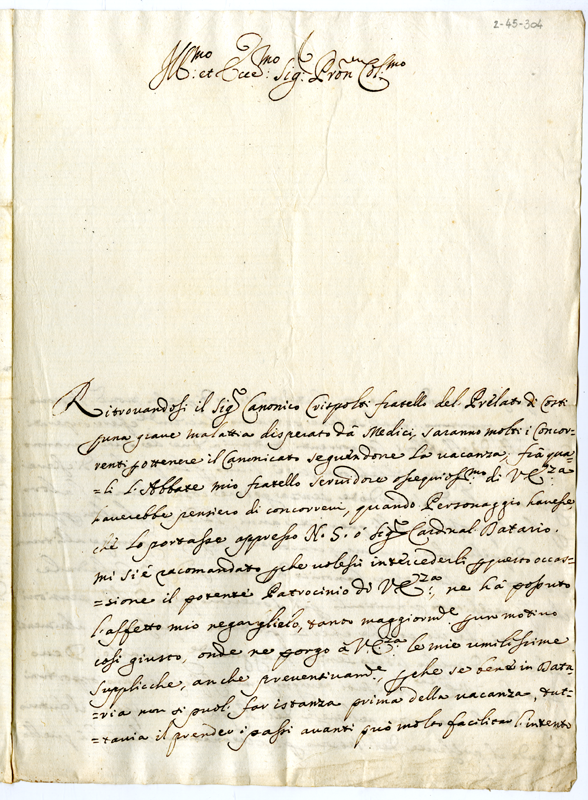 2-45-304
Ill.mo et Ecc.mo Sig.r Pron Col.mo
Ritrouandosi il Sig.r Canonico Crispolti fratello del Prelato di Costì
p una graue malattia disperato dà Medici, saranno molti i concor-
renti p ottenere il Canonicato seguendone la vacanza, frà qua
=li l'Abbate mio fratello seruidore ossequios.mo di V.Ecc.za
hauerebbe pensiero di concorrerui, quando Personaggio hauesse,
chè lo portasse appresso N. S. ó Sig.r Cardinal Datario.
mi si è racomandato pche volessi intercederli p questo occas=
=sione il potente Patrocinio di V.Ecc.za, ne hà possuto
l'affetto mio negarglielo, tanto maggiorm.te p un motiuo
così giusto, onde ne porgo à V.Ecc.za le mie umilissime
supplicche, anche preuentiuam.te, pche se bene in Data
=ria non si puol far istanza prima della vacanza, tut-
=tauia il prender i passi auanti può molto facilitar l'intento